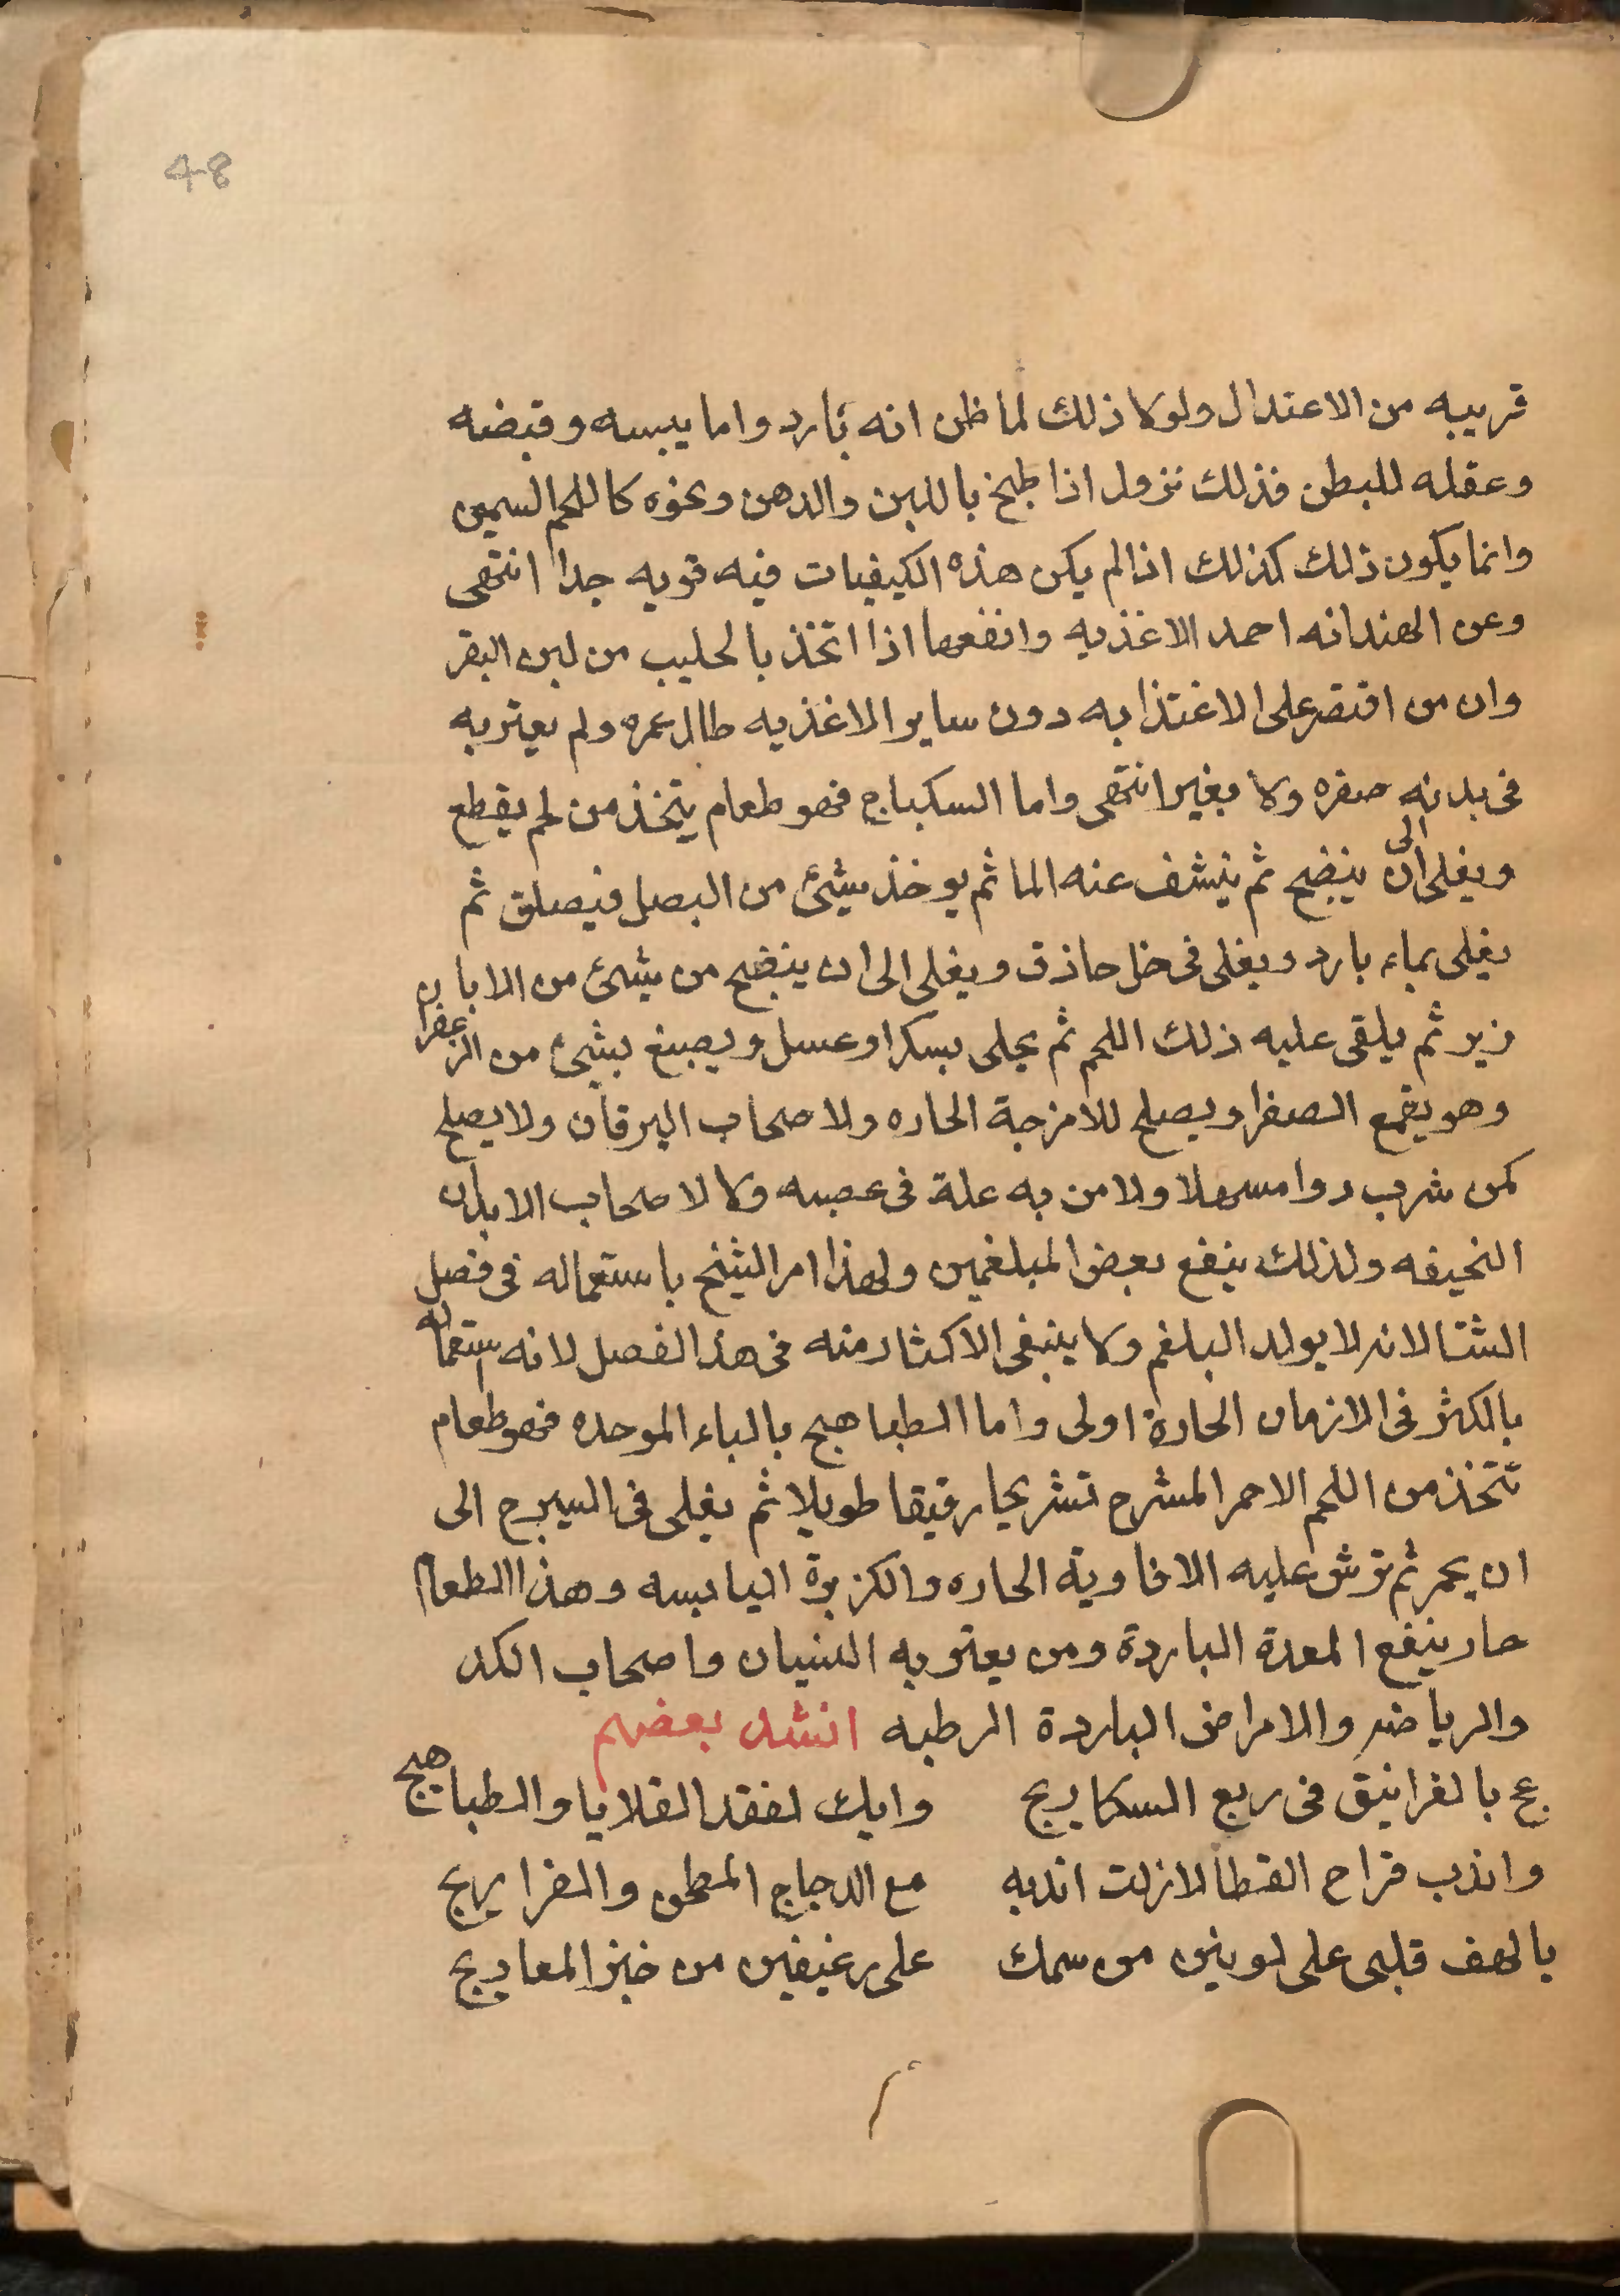 48
قريبه من الاعتدال ولولا ذلك لما ظن انه بارد واما يبسه وقبضه
وعقله للبطن فذلك نزول اذا طبخ باللبن والدهن ونحوه كاللحم السمين
وانما يكون ذلك كذلك اذا لم يكن هذه الكيفيات فيه قويه جدا انتهى
وعن الهند انه احمد الاغذيه وانفعها اذا اتخذ بالحليب من لبن البقر
وان من اقتصر على الاغتذا به دون ساير الاغذيه طال عمره ولم يعتريه
فى بدنه صفره ولا تغيير انتهى واما السكباج فهو طعام يتخذ من لحم يقطع
ويغلى الى ان ينضج ثم ينشف عنه الما ثم يوخذ شيئ من البصل فيصلق ثم
يغلى بماء بارد ويغلى فى خل حاذق ويغلى الى ان ينضج من شيئ من الابا
زير ثم يلقى عليه ذلك اللحم ثم يحلى بسكر او عسل ويصبغ بشيئ من الزعفران
وهو يقمع الصفرا ويصلح للامزجة الحاره ولاصحاب اليرقان ولا يصلح
لمن شرب دوا مسهلا ولا من به علة فى عصبه ولا لاصحاب الابدان
النحيفه ولذلك ينفع بعض المبلغمين ولهذا امر الشيخ باستعماله فى فصل
الشتا لانه لا يولد البلغم ولا ينبغى الاكثار منه فى هذ الفصل لانه استعماله
بالكثر فى الازمان الحارة اولى واما الطباهج بالباء الموحده فهو طعام
تتخذ من اللحم الاحمر المشرح تشريحا رقيقا طويلا ثم يغلى فى السيرج الى
ان يحمر ثم ترش عليه الافاوية الحاره والكزبرة اليابسه وهذا الطعام
حار ينفع المعدة الباردة ومن يعتريه النسيان واصحاب الكد
والرياضه والامراض الباردة الرطبه انشد بعضهم
عج بالغرانيق فى ربع السكاريج وابك لفقد القلايا والطباهيج
واندب فراخ القطا لا زلت اندبه مع الدجاج المطحن والفراريج
يا لهف قلبى على لونين من سمك على رغيفين من خبز المعاريج